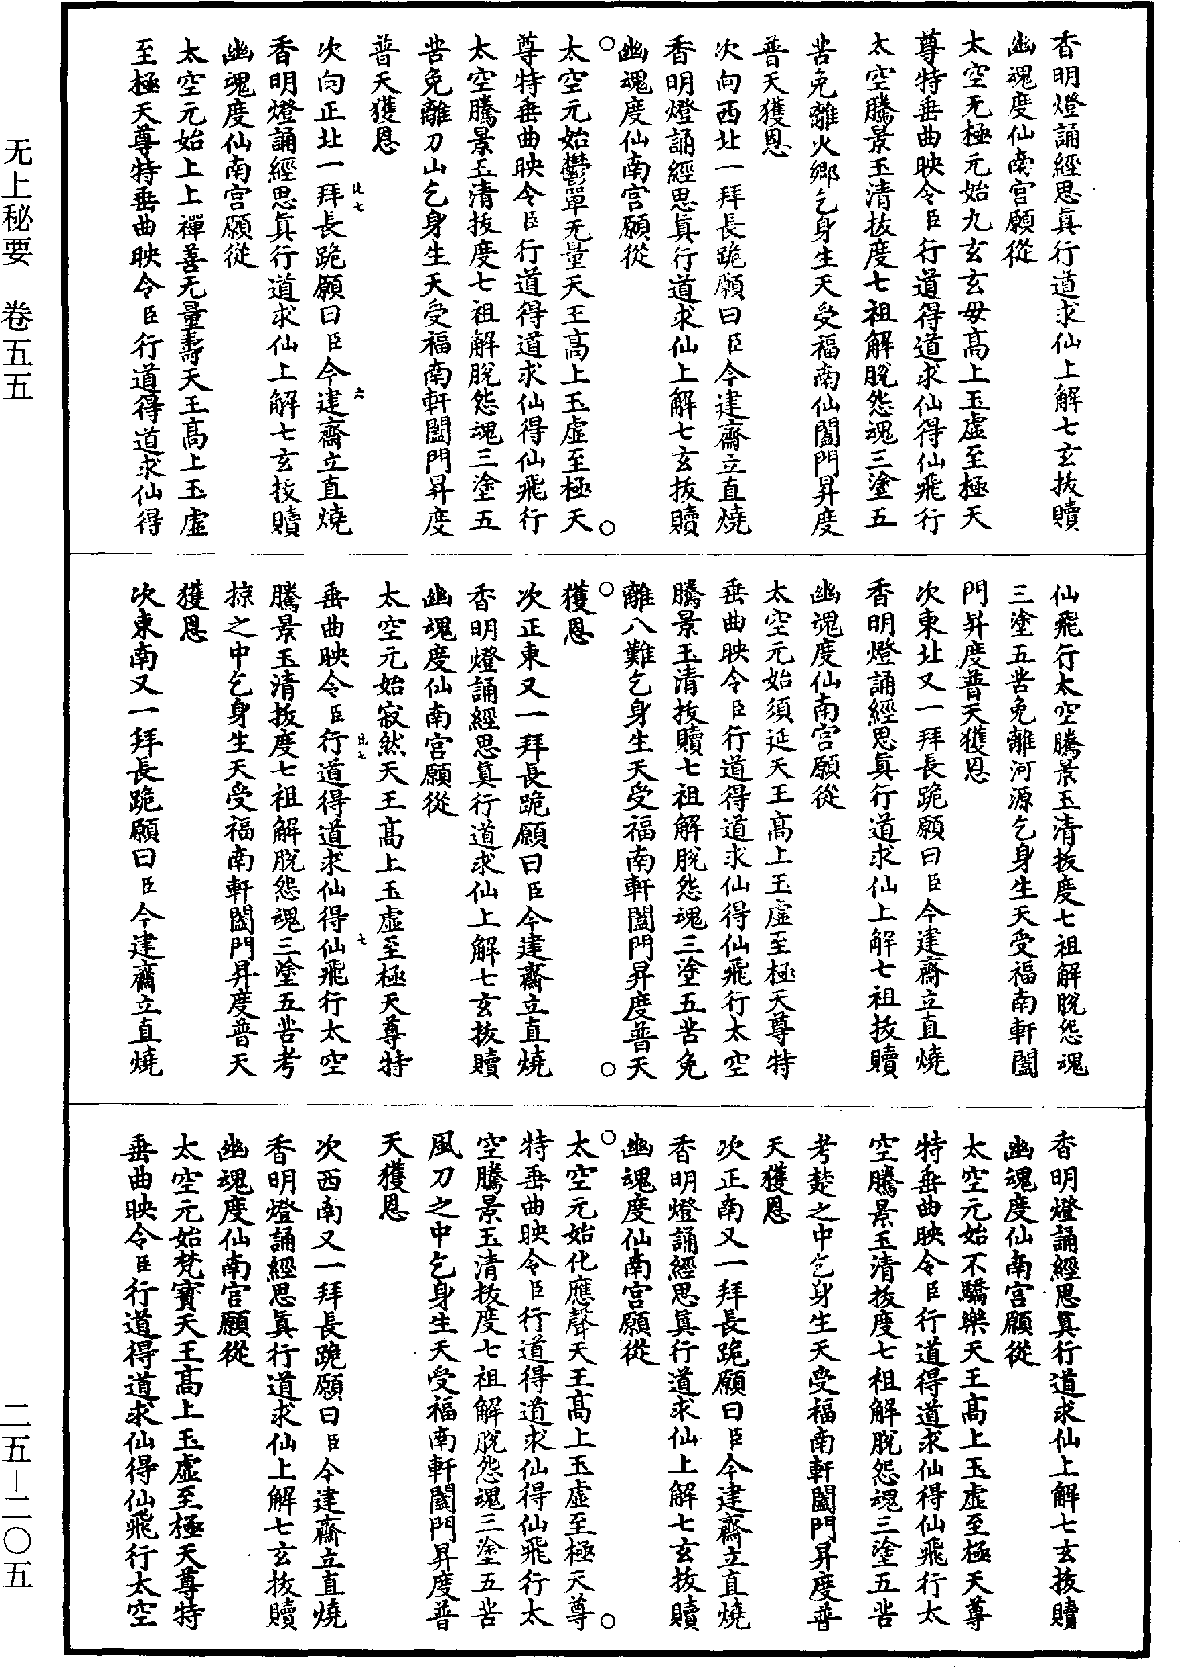 香明燈誦經思真行道求仙上解七玄拔贖
幽魂度仙南宮願從
太空无極元始九玄玄母高上玉虛至極天
尊特垂曲映令臣行道得道求仙得仙飛行
太空騰景玉清拔度七祖解脫怨魂三塗五
苦免離火鄉乞身生天受福南仙闔門昇度
普天獲恩
次向西北一拜長跪願曰臣今建齋立直燒
香明燈誦經思真行道求仙上解七玄拔贖
幽魂度仙南宮願從
太空元始鬱單无量天王高上玉虛至極天
尊特垂曲映令臣行道得道求仙得仙飛行
太空騰景玉清拔度七祖解脫怨魂三塗五
苦免離刀山乞身生天受福南軒闔門昇度
普天獲恩
次向正北一拜長跪願曰臣今建齋立直燒
香明燈誦經思真行道求仙上解七玄拔贖
幽魂度仙南宮願從
太空元始上上禪善无量壽天王高上玉虛
至極天尊特垂曲映令臣行道得道求仙得
仙飛行太空騰景玉清拔度七祖解脫怨魂
三塗五苦免離河源乞身生天受福南軒闔
門昇度普天獲恩
次東北又一拜長跪願曰臣今建齋立直燒
香明燈誦經思真行道求仙上解七祖拔贖
幽魂度仙南宮願從
太空元始須延天王高上玉虛至極天尊特
垂曲映令臣行道得道求仙得仙飛行太空
騰景玉清拔贖七祖解脫怨魂三塗五苦免
離八難乞身生天受福南軒闔門昇度普天
獲恩
次正東又一拜長跪願曰臣今建齋立直燒
香明燈誦經思真行道求仙上解七玄拔贖
幽魂度仙南宮願從
太空元始寂然天王高上玉虛至極天尊特
垂曲映令臣行道得道求仙得仙飛行太空
騰景玉清拔度七祖解脫怨魂三塗五苦考
掠之中乞身生天受福南軒闔門昇度普天
獲恩
次東南又一拜長跪願曰臣今建齋立直燒
香明燈誦經思真行道求仙上解七玄拔贖
幽魂度仙南宮願從
太空元始不驕樂天王高上玉虛至極天尊
特垂曲映令臣行道得道求仙得仙飛行太
空騰景玉清拔度七祖解脫怨魂三塗五苦
考楚之中乞身生天受福南軒闔門昇度普
天獲恩
次正南又一拜長跪願曰臣今建齋立直燒
香明燈誦經思真行道求仙上解七玄拔贖
幽魂度仙南宮願從
太空元始化應聲天王高上玉虛至極天尊
特垂曲映令臣行道得道求仙得仙飛行太
空騰景玉清拔度七祖解脫怨魂三塗五苦
風刀之中乞身生天受福南軒闔門昇度普
天獲恩
次西南又一拜長跪願曰臣今建齋立直燒
香明燈誦經思真行道求仙上解七玄拔贖
幽魂度仙南宮願從
太空元始梵寶天王高上玉虛至極天尊特
垂曲映令臣行道得道求仙得仙飛行太空
无上秘要 卷五五
二五—二〇五